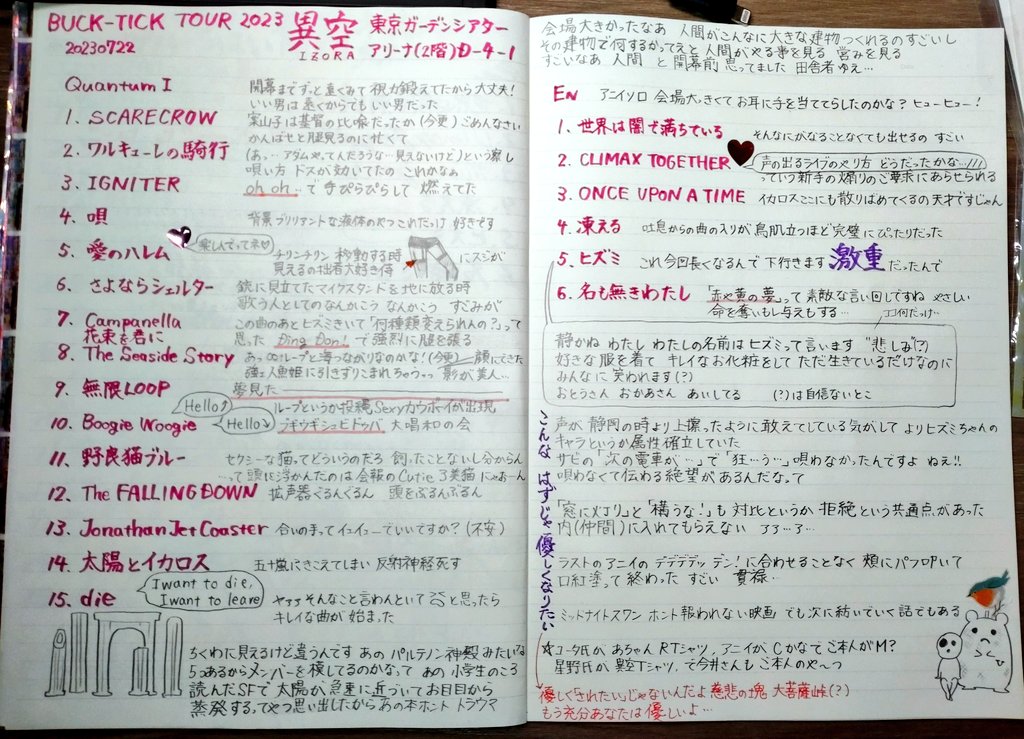 BUCK-TICK TOUR 2023 異空 東京ガーデンシアター
20230722 IZORA アリーナ(2階)D-4-1
Quantum I 開幕までずっと遠くみて視力鍛えてたから大丈夫!
いい男は遠くからでもいい男だった
1. SCARECROW 案山子は基督の比喩だったか(今更)ごめんなさい
かんばせと腿見るのに忙しくて
2. ワルキューレの騎行 (あっ…アダムやってんだろうな…見えないけど)という察し
唄い方 ドスが効いてたの これかなぁ
3. IGNITER oh oh…で手ぴらぴらして 燃えてた
4. 唄 背景ブリリアントな液体のやつこれだっけ 好きです
楽しんでってネ♡
5. 愛のハレム チリンチリン 移動する時
見えるの拙者大好き侍 にスジが
6. さよならシェルター 銃に見立てたマイクスタンドを地に放る時
歌う人としてのなんかこう なんかこう すごみが
7. Campanella 花束を君に この曲のあとヒズミきいて「何種類変えられんの?」って
思った Ding Don! で強烈に腿を張る
8. The Seaside Story あっ∞ループと海つながりなのかな!(今更)顔にてきた
強ェ人魚姫に引きずりこまれちゃうっっ 影が美人…
9. 無限LOOP 夢見た
Hello⤴ ループというか投縄Sexyカウボーイが出現
Hello⤵
10. Boogie Woogie ブギウギシュビドゥバ 大唱和の会
11. 野良猫ブルー セクシーな猫ってどういうのだろ 飼ったことないし分からん
…って頭に浮かんだのは会報のCutie 了美猫 にゃおーん
12. The FALLING DOWN 拡声器ぐるんぐるん 頭をぶるんぶるん
13. Jonathan Jet Coaster 合いの手ってイェイェーでいいですか?(不安)
14. 太陽とイカロス 五十嵐にきこえてしまい 反射神経死す
15. die
I want to die,
I want to leave
ヤァァそんなこと言わんといて と思ったら
キレイな曲が始まった
ちくわに見えるけど違うんです あの パルテノン神殿みたいな
5つあるからメンバーを模してるのかなって あの 小学生のころ
読んだSFで 太陽が急激に近づいてお目目から
蒸発するってやつ思い出したからあの本ホント トラウマ
会場大きかったなあ 人間がこんなに大きな建物つくれるのすごいし
その建物で何するかってえと人間がやる事を見る 営みを見る
すごいなあ 人間 と開幕前 思ってました 田舎者ゆえ…
EN アニイソロ 会場大っきくてお耳に手を当ててらしたのかな? ヒューヒュー!
1. 世界は闇で満ちている そんなにがなることなくても出せるの すごい
2. CLIMAX TOGETHER 声の出るライブのやり方 どうだったかな…///
っていう新手の煽りのご要求にあらせられる
3. ONCE UPON A TIME イカロスここにも散りばめてくるの天才ですじゃん
4. 凍える 吐息からの曲の入りが鳥肌立つほど完璧にぴたりだった
5. ヒズミ これ今回長くなるんで 下行きます 激重 だったんで
6. 名も無きわたし 「赤や黄の夢」って素敵な言い回しですね やさしい
命を奪いもし与えもする…
静かね わたし わたしの名前はヒズミって言います "悲しみ"(?)
好きな服を着て キレイなお化粧をして ただ生きているだけなのに
みんなに笑われます(?)
おとうさん おかあさん あいしてる (?)は自信ないとこ
声が静岡の時より上擦ったように敢えてしている気がして よりヒズミちゃんの
キャラというか属性確立していた
サビの「次の電車が…」で「狂…う…」唄わなかったんですよ ねえ!!
唄わなくて伝わる絶望があるんだなって
「窓に灯り」と「構うな!」も対比というか拒絶という共通点があった
内(仲間)に入れてもらえない アァ…ァ…
ラストのアニイの デデデデッ デン!に合わせることなく 頬にパフ叩いて
口紅塗って終わった すごい 貫禄…
ミッドナイトスワン ホント報われない映画 でも次に紡いでいく話でもある
☆ユータ氏が あちゃん RTシャツ,アニイが Cかなで ご本人がM?
星野氏が 異空Tシャツ,で今井さんも ご本人のや〜つ
こんな はずじゃ 優しくなりたい
「優しくされたい」じゃないんだよ 慈悲の塊 大菩薩峠(?)
もう充分あなたは優しいよ…